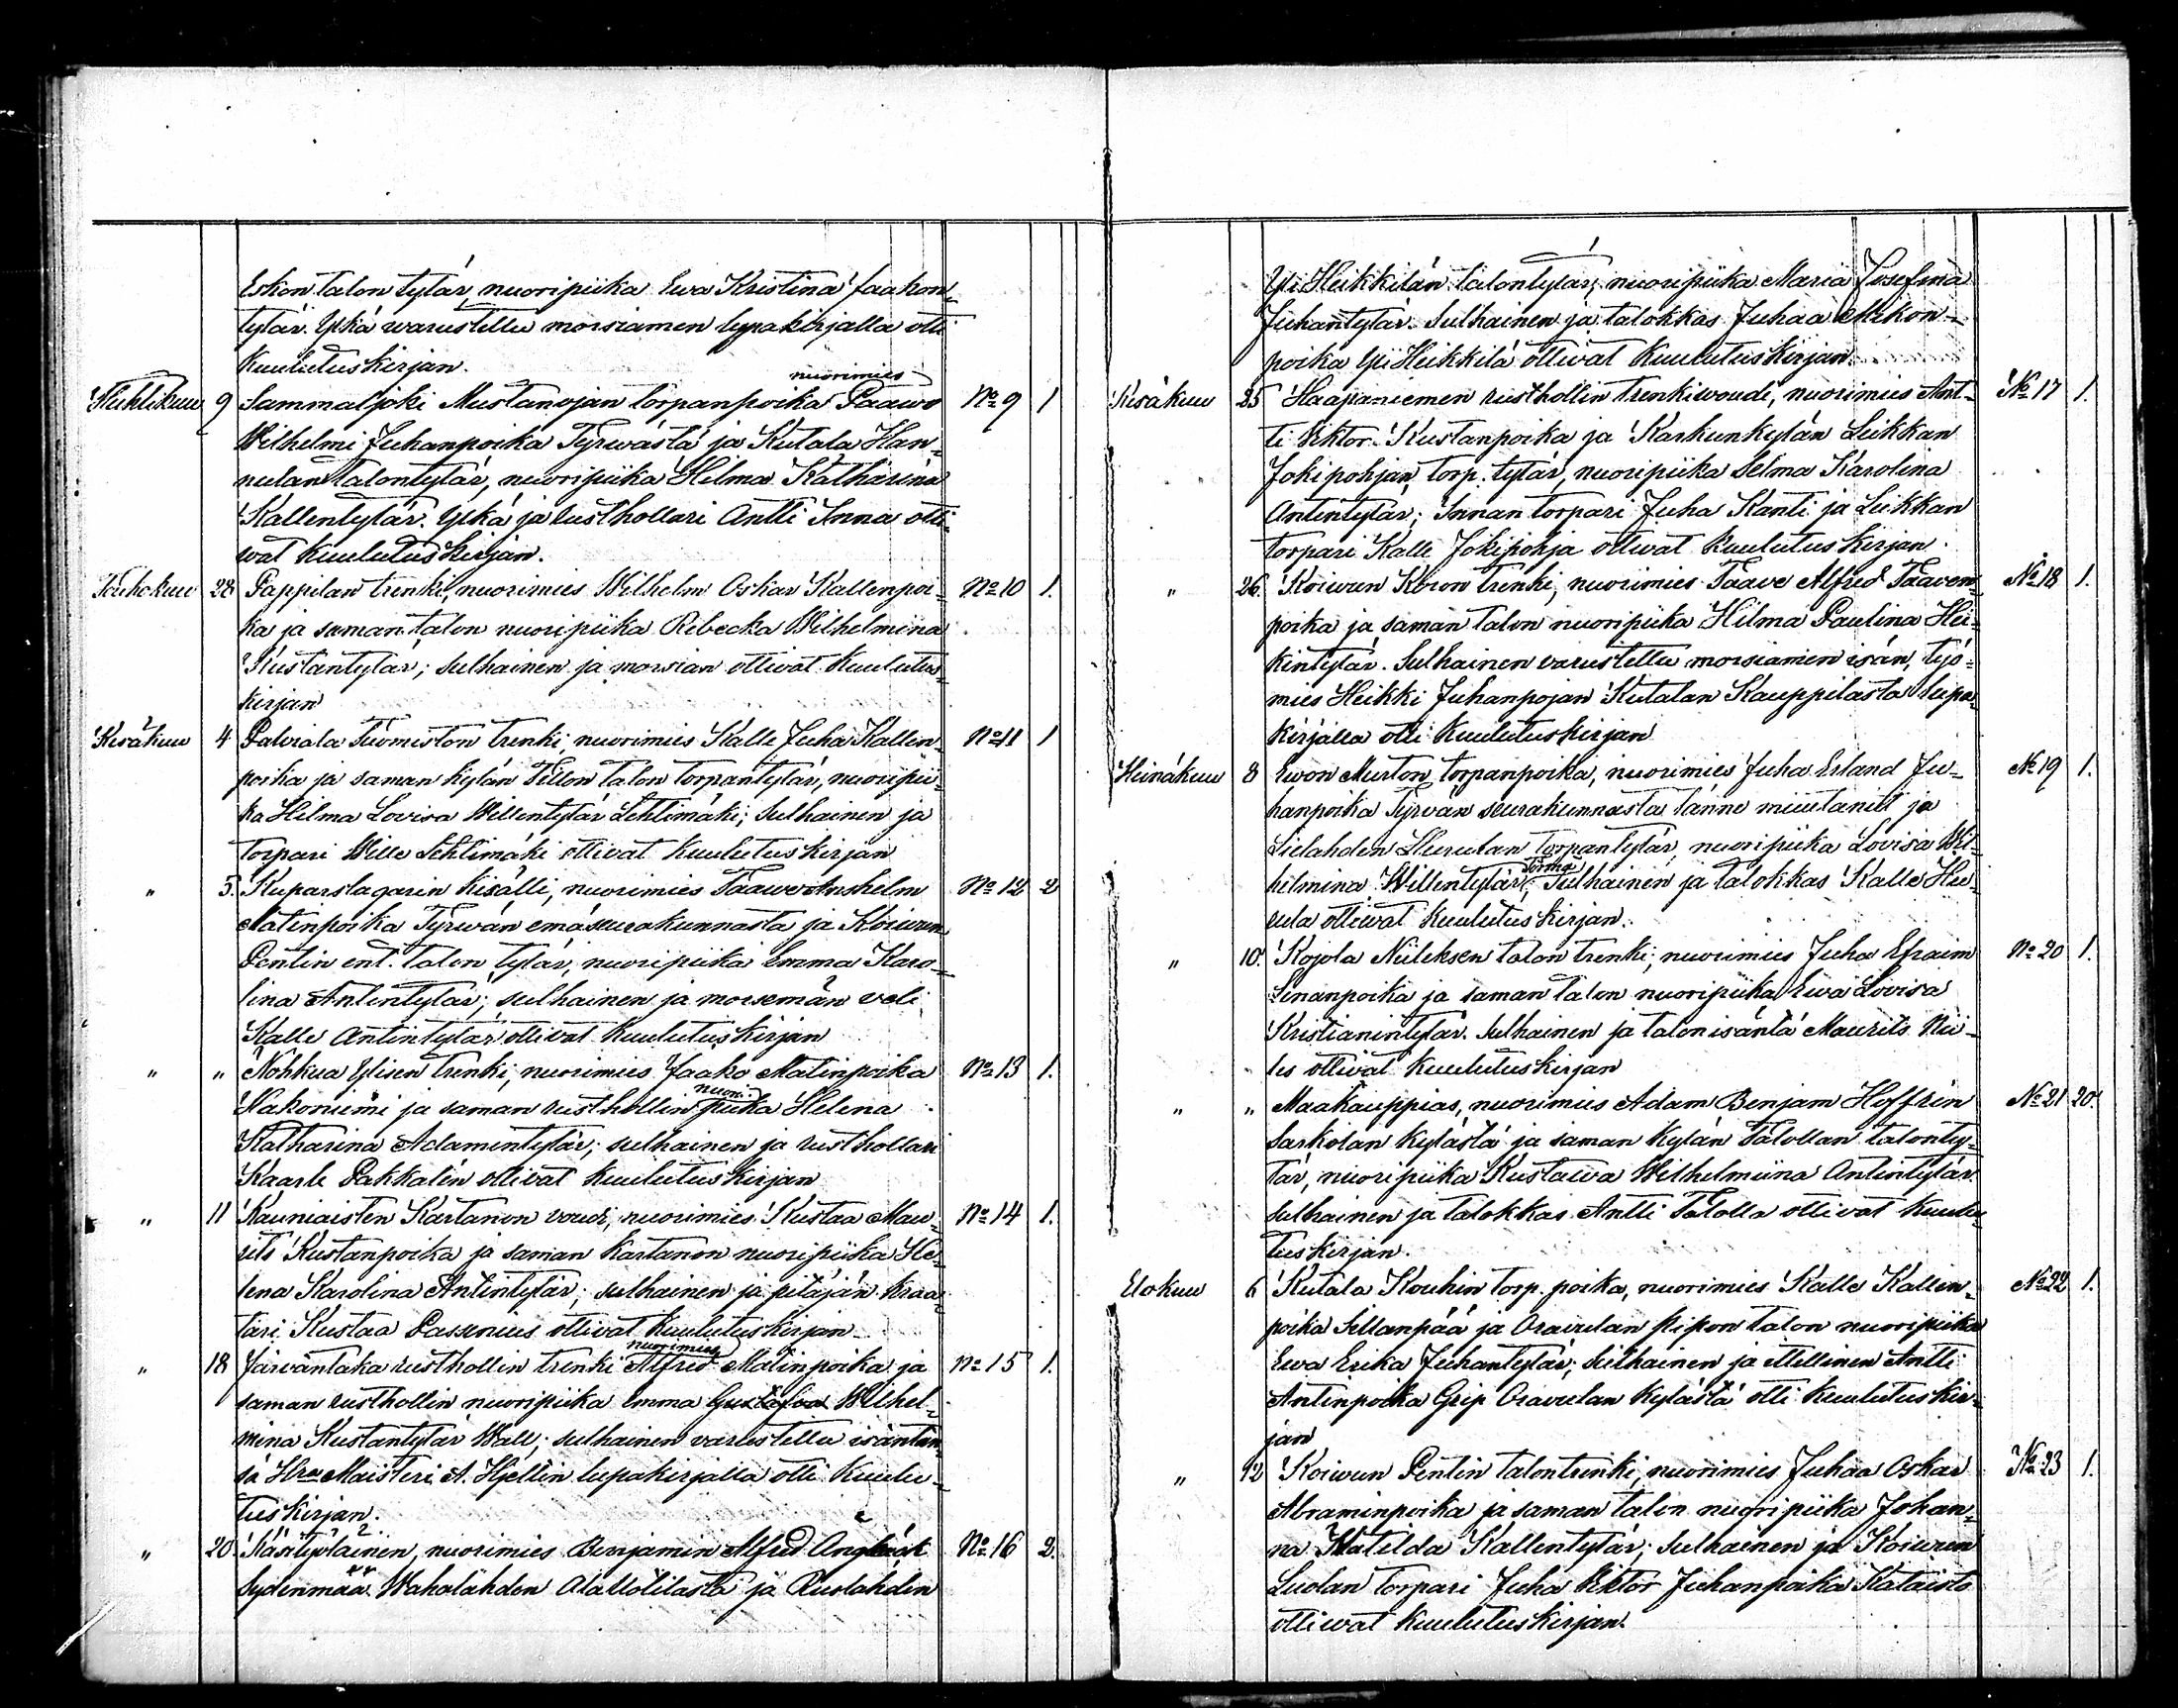 Eskon talon tytär, nuoripiika Ewa Kristina Jaakon-
tytär. Ylkä warustettu morsiamen lupakirjalla otti
kuulutuskirjan.
nuorimies
Huhtikuu 9 Sammaljoki Mustanojan torpanpoika Paawo No 9 1
Wilhelmi Juhanpoika Tyrwäästä ja Kutala Han-
nulan talontytär, nuoripiika Hilma Katharina
Kallentytär. Ylkä ja rusthollari Antti Inna otti-
wat kuulutuskirjan.
Toukokuu 28 Pappilan trenki, nuorimies Wilhelm Oskar Kallenpoi- No 10 1.
ka ja saman talon nuoripiika Rebecka Wilhelmina
Kustantytär; sulhainen ja morsian ottivat kuulutus-
kirjan
Kesäkuu 4 Palviala Tuomiston trenki, nuorimies Kalle Juha Kallen- No 11 1
poika ja saman kylän Tillon talon torpantytär, nuoripii-
ka Hilma Lovisa Willentytär Lehtimäki; sulhainen ja
torpari Wille Lehtimäki ottivat kuulutuskirjan
" 5. Kuparslagarin kisälli, nuorimies Taawe Anshelm No 12 2
Matinpoika Tyrwän emäseurakunnasta ja Koiwun
Pentin ent. talon tytär, nuoripiika Emma Karo-
lina Antintytär; sulhainen ja morsemän veli
Kalle Antintytär ottivat kuulutuskirjan
" " Nohkua Ylisen trenki, nuorimies Jaako Matinpoika No 13 1.
nuori
Hakoniemi ja saman rusthollin piika Helena
Katharina Adamintytär; sulhainen ja rusthollari
Kaarle Pakkalén ottivat kuulutuskirjan
" 11 Kauniaisten Kartanon vouti, nuorimies Kustaa Mau- No 14 1.
rits Kustanpoika ja saman kartanon nuoripiika He-
lena Karolina Antintytär; sulhainen ja pitäjän kraa-
tari Kustaa Passenius ottivat kuulutuskirjan
nuorimies
" 18 Järventaka rusthollin trenki Alfred Matinpoika ja No 15 1.
saman rusthollin nuoripiika Emma Gustafva Wilhel-
mina Kustantytär Wall; sulhainen varustettu isäntän-
sä Hra Maisteri A. Hjeltin lupakirjalla otti kuulu-
tuskirjan.
" 20. Käsityöläinen, nuorimies Benjamin Alfred No 16 2.
Sydenmaa Wahalahden Alattotilasta ja Ruolahden
Yli Heikkilän talontytär, nuoripiika Maria Josefina
Juhantytär. Sulhainen ja talokkas Juhaa Mikon-
poika Yli Heikkilä ottivat kuulutuskirjan.
Kesäkuu 25 Haapaniemen rusthollin trenkivouti, nuorimies Ant- No 17 1.
ti Viktor Kustanpoika ja Karkunkylän Leikkan
Jokipohjan torp. tytär, nuoripiika Selma Karolina
Antintytär; Innan torpari Juha Kanti ja Leikkan
torpari Kalle Jokipohja ottivat kuulutuskirjan.
" 26. Koiwun Koron trenki, nuorimies Taave Alfred Taaven- No 18 1.
poika ja saman talon nuoripiika Hilma Paulina Hei-
kintytär. Sulhainen varustettu morsiamen isän, työ-
mies Heikki Juhanpojan Kutalan Kauppilasta lupa-
kirjalla otti kuulutuskirjan
Heinäkuu 8 Ewon Murton torpanpoika, nuorimies Juha Erland Ju- No 19 1.
hanpoika Tyrvän seurakunnasta tänne muuttanut ja
Lielahden Heerulan torpantytär, nuoripiika Lovisa Wil-
Törmä
helmina Willentytär; Sulhainen ja talokkas Kalle Hee-
rula ottivat kuulutuskirjan.
" 10. Kojola Niileksen talon trenki, nuorimies Juha Efraim No 20 1.
Senanpoika ja saman talon nuoripiika Ewa Lovisa
Kristianintytär. Sulhainen ja talonisäntä Maurits Nii-
les ottivat kuulutuskirjan
" " Maakauppias, nuorimies Adam Benjam Hoffrén No 21 20.
Sarkolan kylästä ja saman kylän Tatollan talonty-
tär, nuoripiika Kustawa Wilhelmiina Antintytär
sulhainen ja talokkas Antti Tatolla ottivat kuulu-
tuskirjan.
Elokuu 6 Kutala Kouhin torp. poika, nuorimies Kalle Kallen- No 22 1.
poika Sillanpää ja Oravulan Ripon talon nuoripiika
Ewa Erika Juhantytär; Sulhainen ja itellinen Antti
Antinpoika Grip Oravulan kylästä otti kuulutuskir-
jan
" 12 Koiwun Pentin talontrenki, nuorimies Juhaa Oskar No 23 1.
Abraminpoika ja saman talon nuoripiika Johan-
na Matilda Kallentytär; sulhainen ja Koiwun
Luolan torpari Juha Viktor Juhanpoika Kataisto
ottiwat kuulutuskirjan.